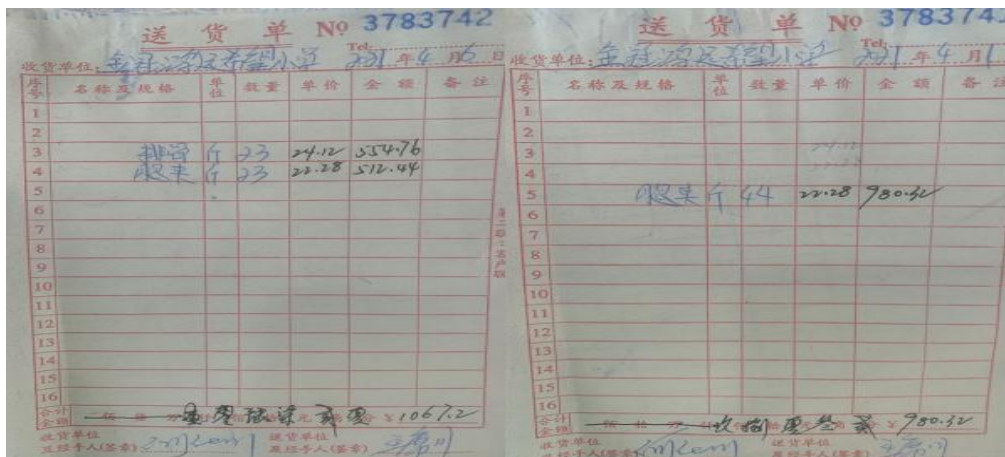 送 货 单 No 3783742
Tel:
收货单位: 希望小学 2021年4月6日
序号 名称及规格 单位 数量 单价 金额 备注
1
2
3 排骨 斤 23 24.12 554.76
4 腿夹 斤 23 22.28 512.44
5
6
7
8
9
10
11
12
13
14
15
16
合计金额 壹零陆柒贰零 ¥1067.2
收货单位及经手人(签章) 送货单位及经手人(签章)
第二联:客户联
送 货 单 No 378374
Tel:
收货单位: 希望小学 2021年4月1
序号 名称及规格 单位 数量 单价 金额 备注
1
2
3
4
5 腿夹 斤 44 22.28 980.32
6
7
8
9
10
11
12
13
14
15
16
合计金额 玖捌零叁贰 ¥980.32
收货单位及经手人(签章) 送货单位及经手人(签章)